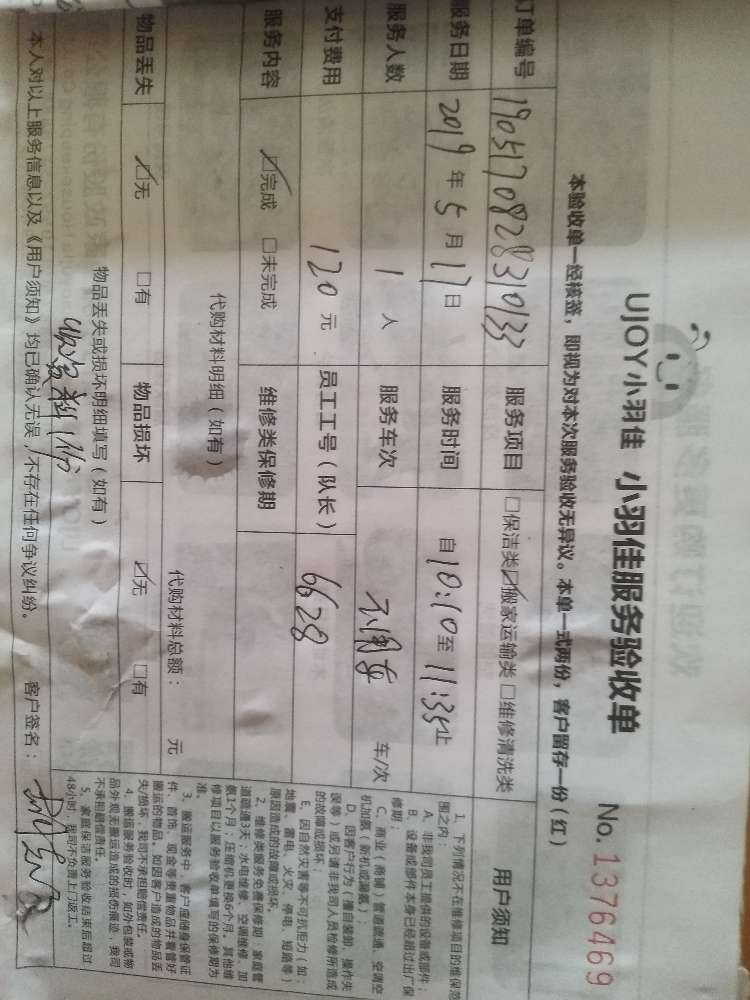 UJOY小羽佳 小羽佳服务验收单 No. 1376469
本验收单一经核签，即视为对本次服务验收无异议。本单一式两份，客户留存一份（红）
订单编号 1905170828310133 服务项目 □保洁类☑搬家运输类 □维修清洗类
服务日期 2019 年 5 月 17 日 服务时间 自 10:10 至 11:35 止
服务人数 1 人 服务车次 不用车 车/次
支付费用 120 元 员工工号（队长） 6628
服务内容 ☑完成 □未完成 维修类保修期
代购材料明细（如有）
代购材料总额： 元
物品丢失 ☑无 □有 物品损坏 ☑无 □有
物品丢失或损坏明细填写（如有）
本人对以上服务信息以及《用户须知》均已确认无误，不存在任何争议纠纷。 客户签名：
用户须知
1、下列情况不在维修项目的维保范
围之内：
A、非我司员工提供的设备或部件；
B、设备或部件本身已经超过出厂保
修期；
C、商业（商铺）管道疏通、空调空
机加氨（新机或漏氨）；
D、因客户行为（擅自装卸、操作失
误等）或另请非我司人员检修所造成
的故障或损坏；
E、因自然灾害等不可抗拒力（如：
地震、雷电、火灾、停电、短路等）
原因造成的故障或损坏。
2、维修类服务免费保修期：家庭管
道疏通3天；水电维修、空调维修、加
氨1个月；压缩机更换6个月。其他维
修项目以服务验收单填写的保修期为
准。
3、搬运服务中，客户应随身保管证
件、首饰、现金等贵重物品并看管好
搬运的物品。如因客户造成的物品丢
失/损坏，我司不承担赔偿责任。
4、搬运服务验收时，如外包装或物
品外观无搬运造成的损伤痕迹，我司
不承担赔偿责任。
5、家庭保洁服务验收结束后超过
48小时，我司不负责上门返工。